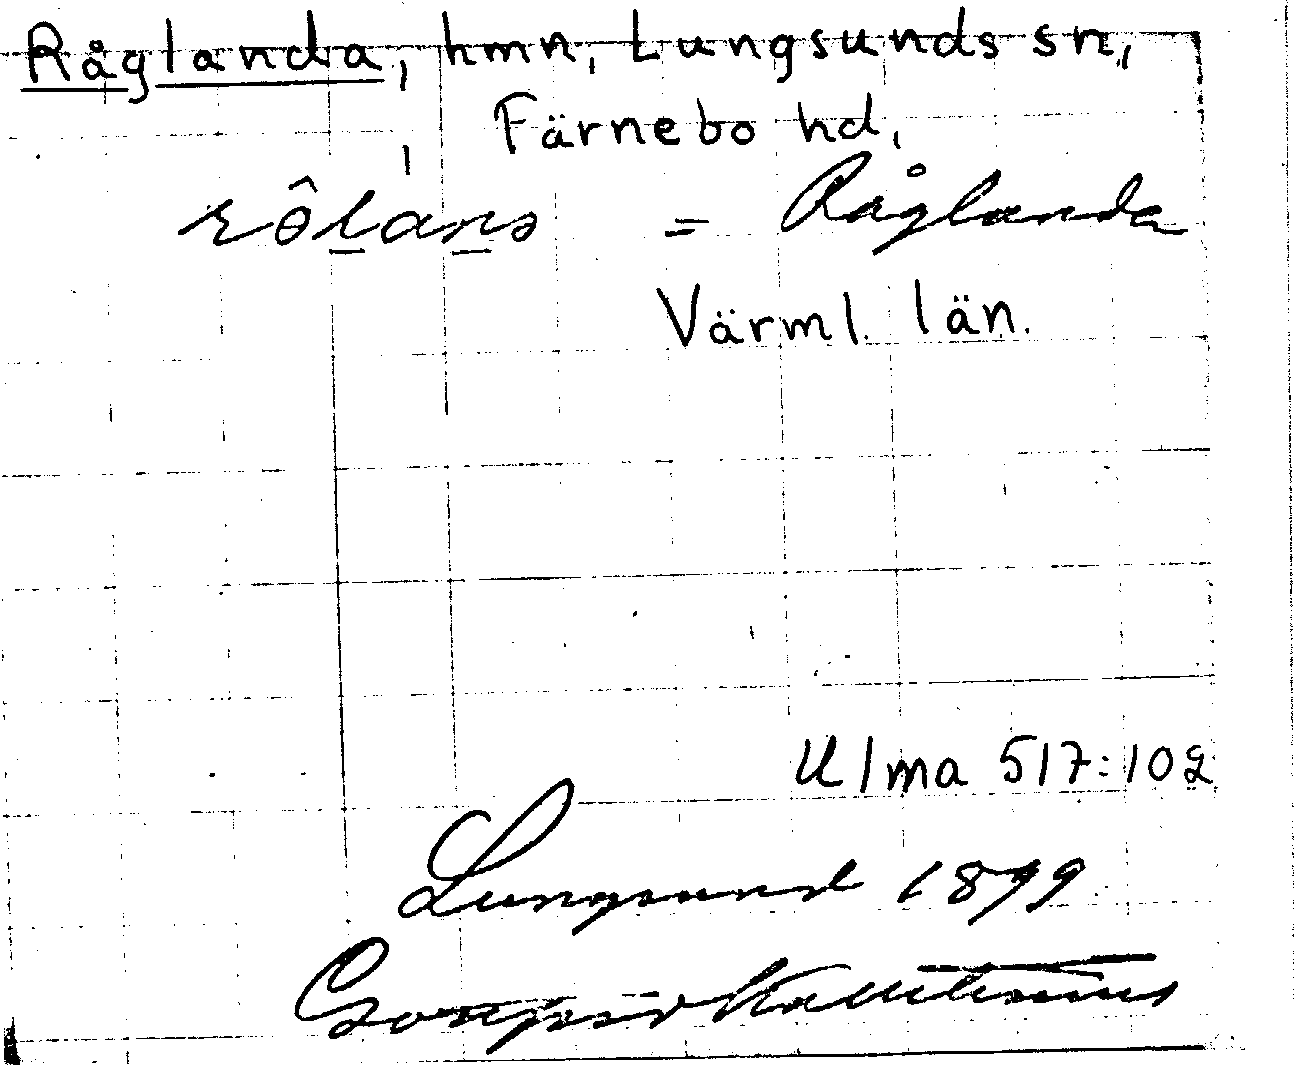 Råglanda, hmn, Lungsunds sn,
Färnebo hd,
= Råglanda
Värml. län.
Ulma 517:102
Lungsund 1899